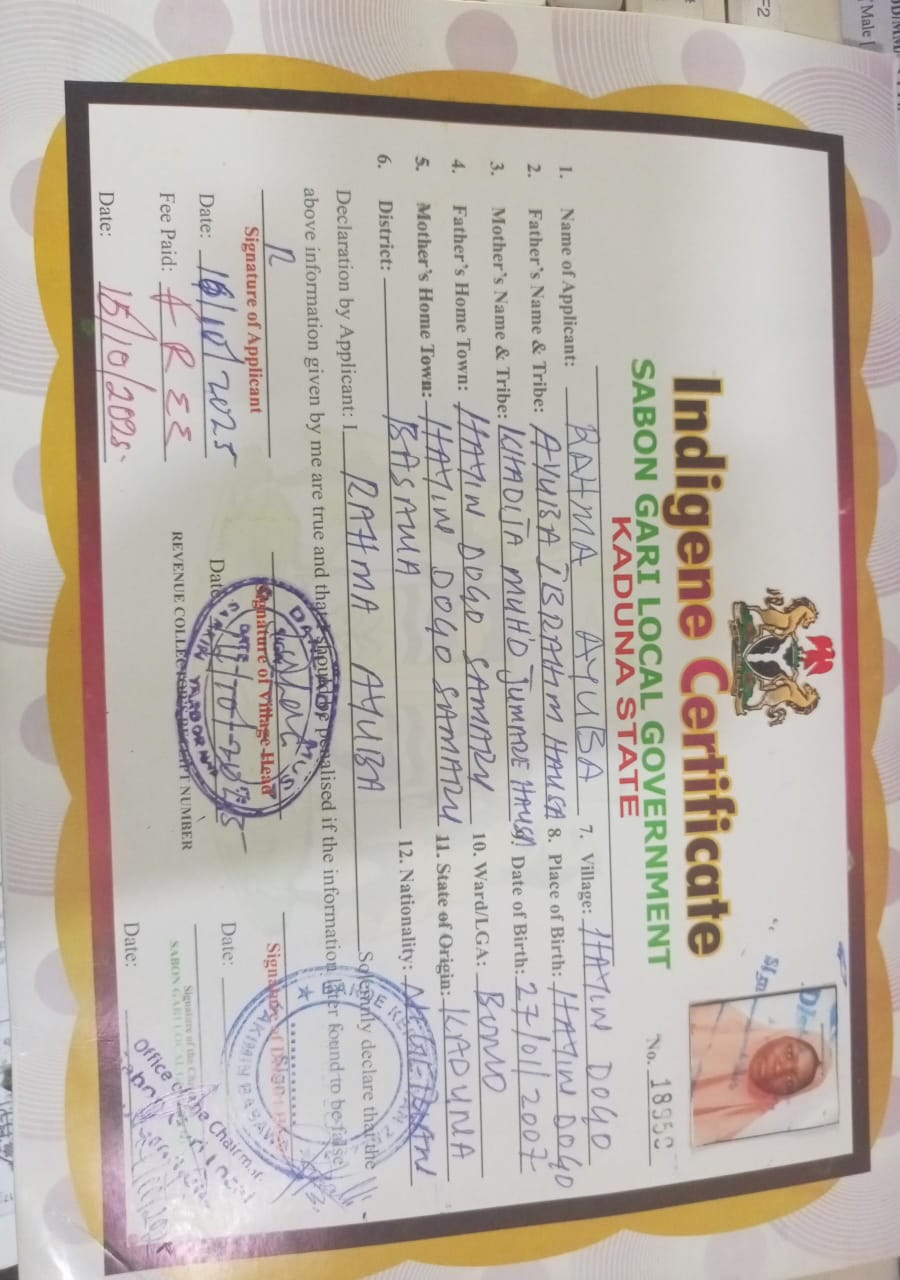 Indigene Certificate
SABON GARI LOCAL GOVERNMENT
KADUNA STATE
No. 18950
1. Name of Applicant: RAHMA AYUBA
2. Father's Name & Tribe: AYUBA IBRAHIM HAUSA
3. Mother's Name & Tribe: KHADIJA MUH'D JUMARE HAUSA
4. Father's Home Town: HAYIN DOGO SAMARU
5. Mother's Home Town: HAYIN DOGO SAMARU
6. District: BASAWA
7. Village: HAYIN DOGO
8. Place of Birth: HAYIN DOGO
Date of Birth: 27/01/2007
10. Ward/LGA: BOMO
11. State of Origin: KADUNA
12. Nationality: NIGERIAN
Declaration by Applicant: I RAHMA AYUBA Solemnly declare that the
above information given by me are true and that I should be penalised if the information later found to be false
Signature of Applicant
Date: 15/10/2025
Fee Paid: FREE
Date: 15/10/2025
Signature of Village Head
Date
REVENUE COLLECTOR'S RECEIPT NUMBER
Date:
Signature of the
SABON GARI LOCAL
Office of the Chairman
Date:
Male